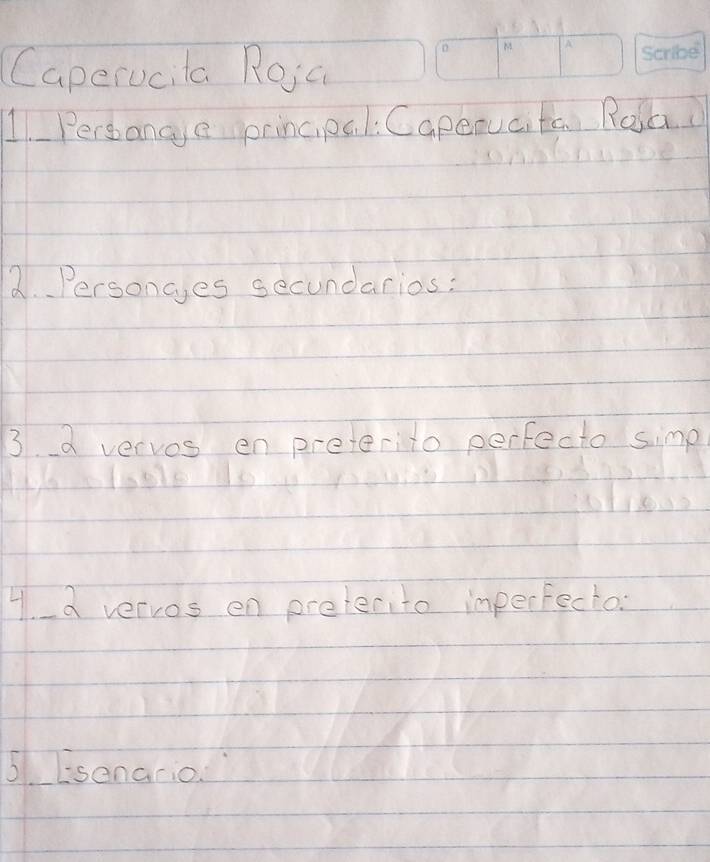 D M A Scribe
Caperucita Roja
1._ Personaje principal: Caperucita Roja
2._ Personajes secundarios:
3._ 2 vervos en preterito perfecto simp
4._ 2 vervos en preterito imperfecto:
5._ Esenario: